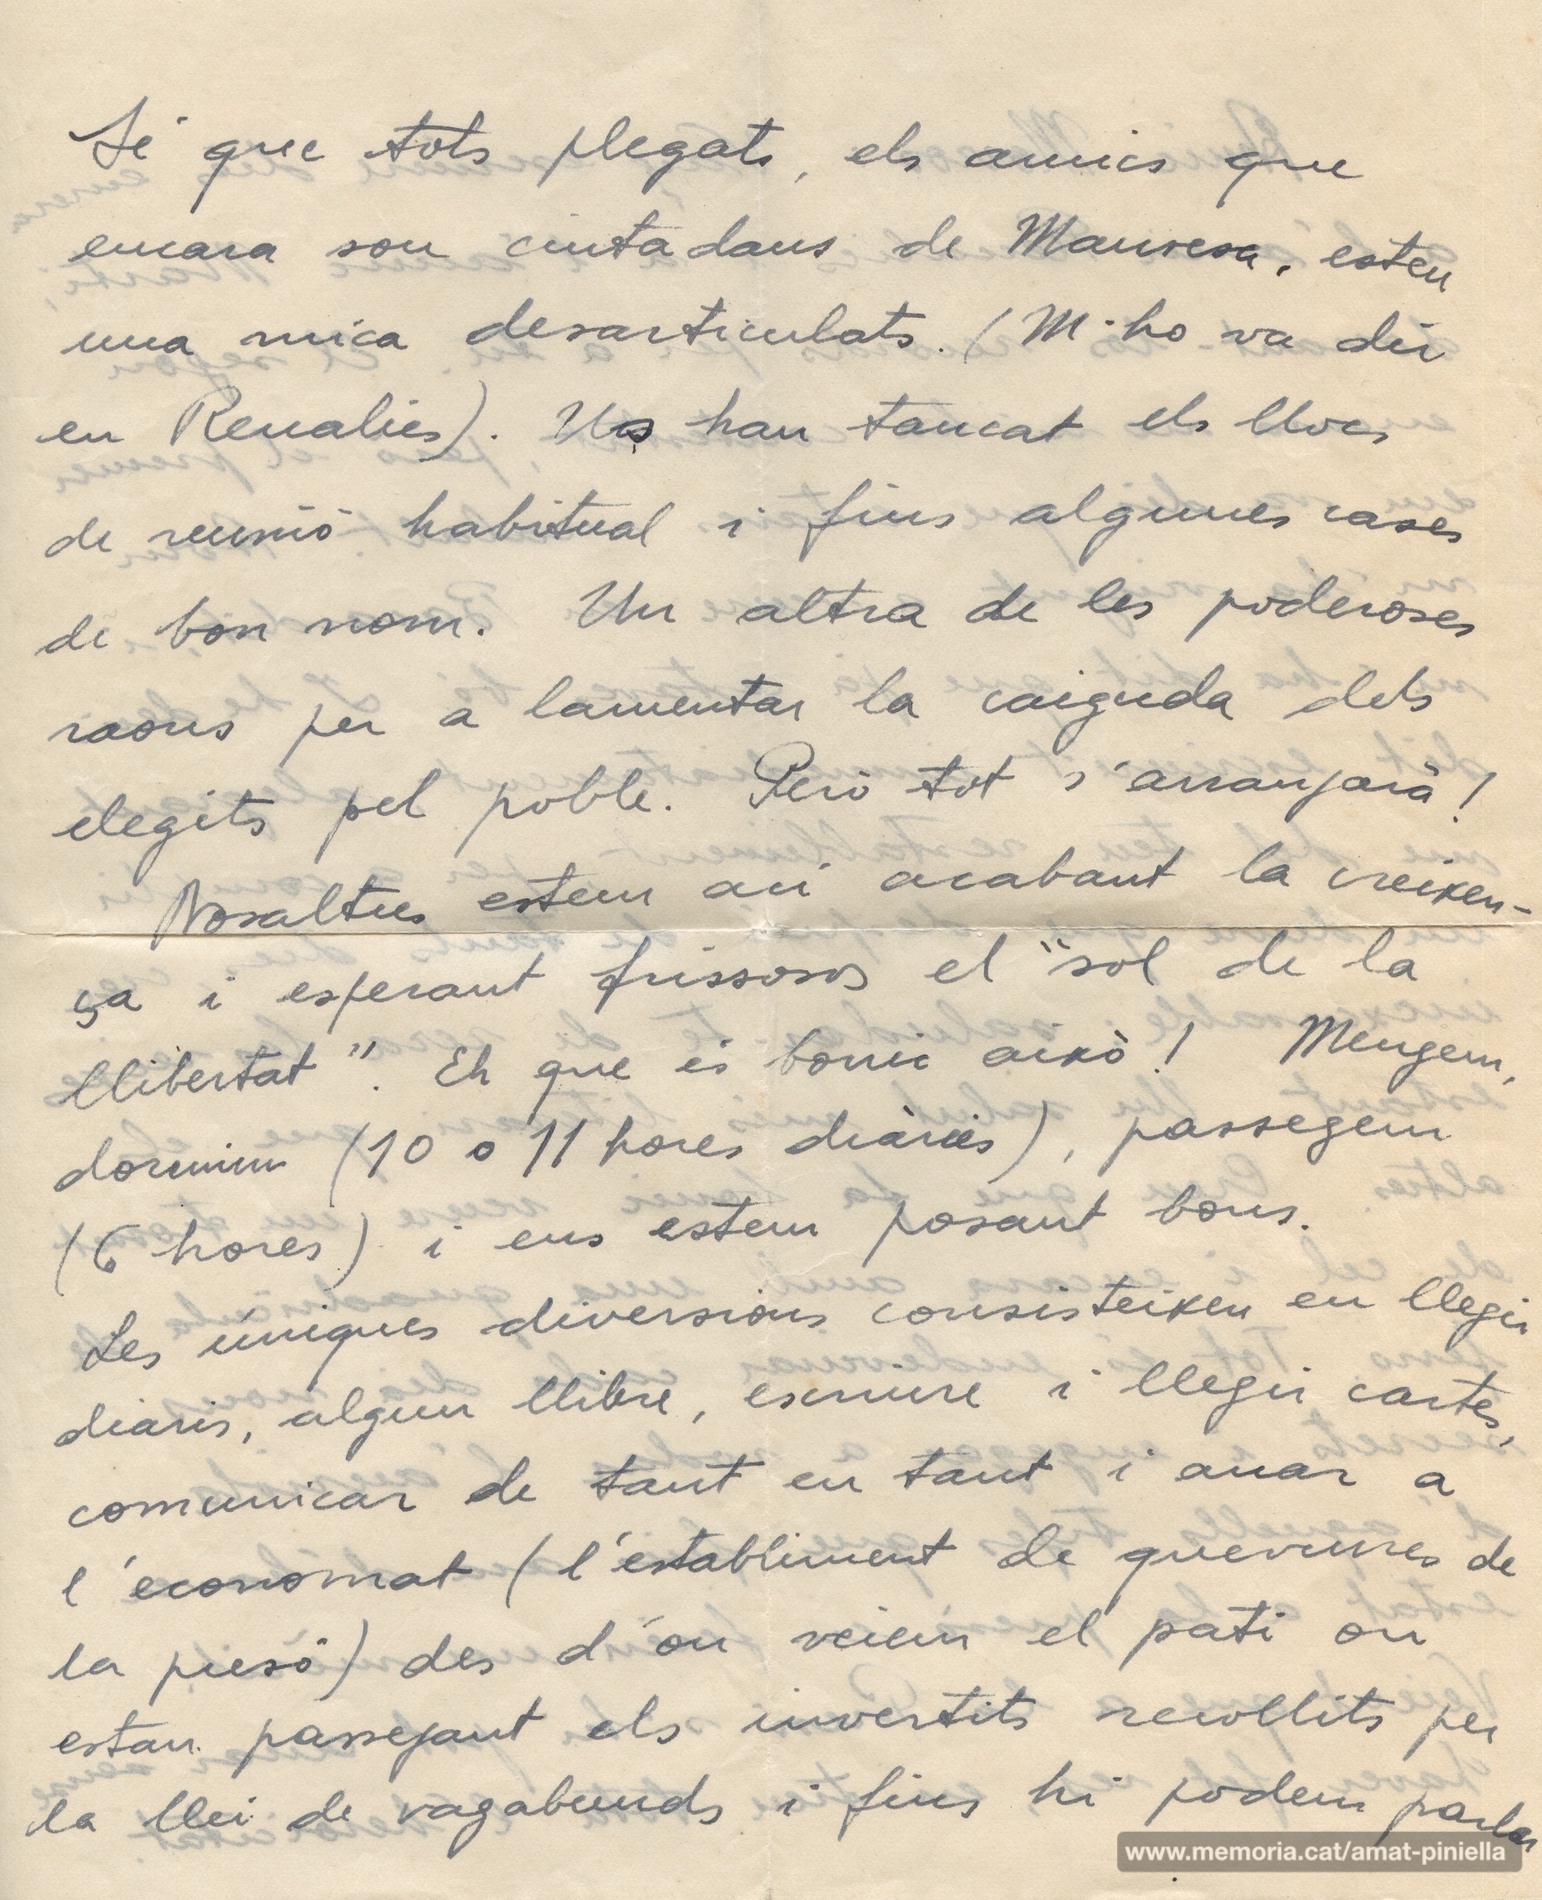 Sé que tots plegats, els amics que
encara sou ciutadans de Manresa, esteu
una mica desarticulats. (M'ho va dir
en Renalies). Us han tancat els llocs
de reunió habitual i fins algunes cases
de bon nom. Un altra de les poderoses
raons per a lamentar la caiguda dels
elegits pel poble. Però tot s'arranjarà!
Nosaltres estem ací acabant la creixen-
ça i esperant frissosos el "sol de la
llibertat". Eh que és bonic això! Mengem,
dormim (10 o 11 hores diàries), passegem
(6 hores) i ens estem posant bons.
Les úniques diversions consisteixen en llegir
diaris, algun llibre, escriure i llegir cartes,
comunicar de tant en tant i anar a
l'economat (l'establiment de queviures de
la presó) des d'on veiem el pati on
estan passejant els invertits recollits per
la llei de vagabunds i fins hi podem parlar
www.memoria.cat/amat-piniella